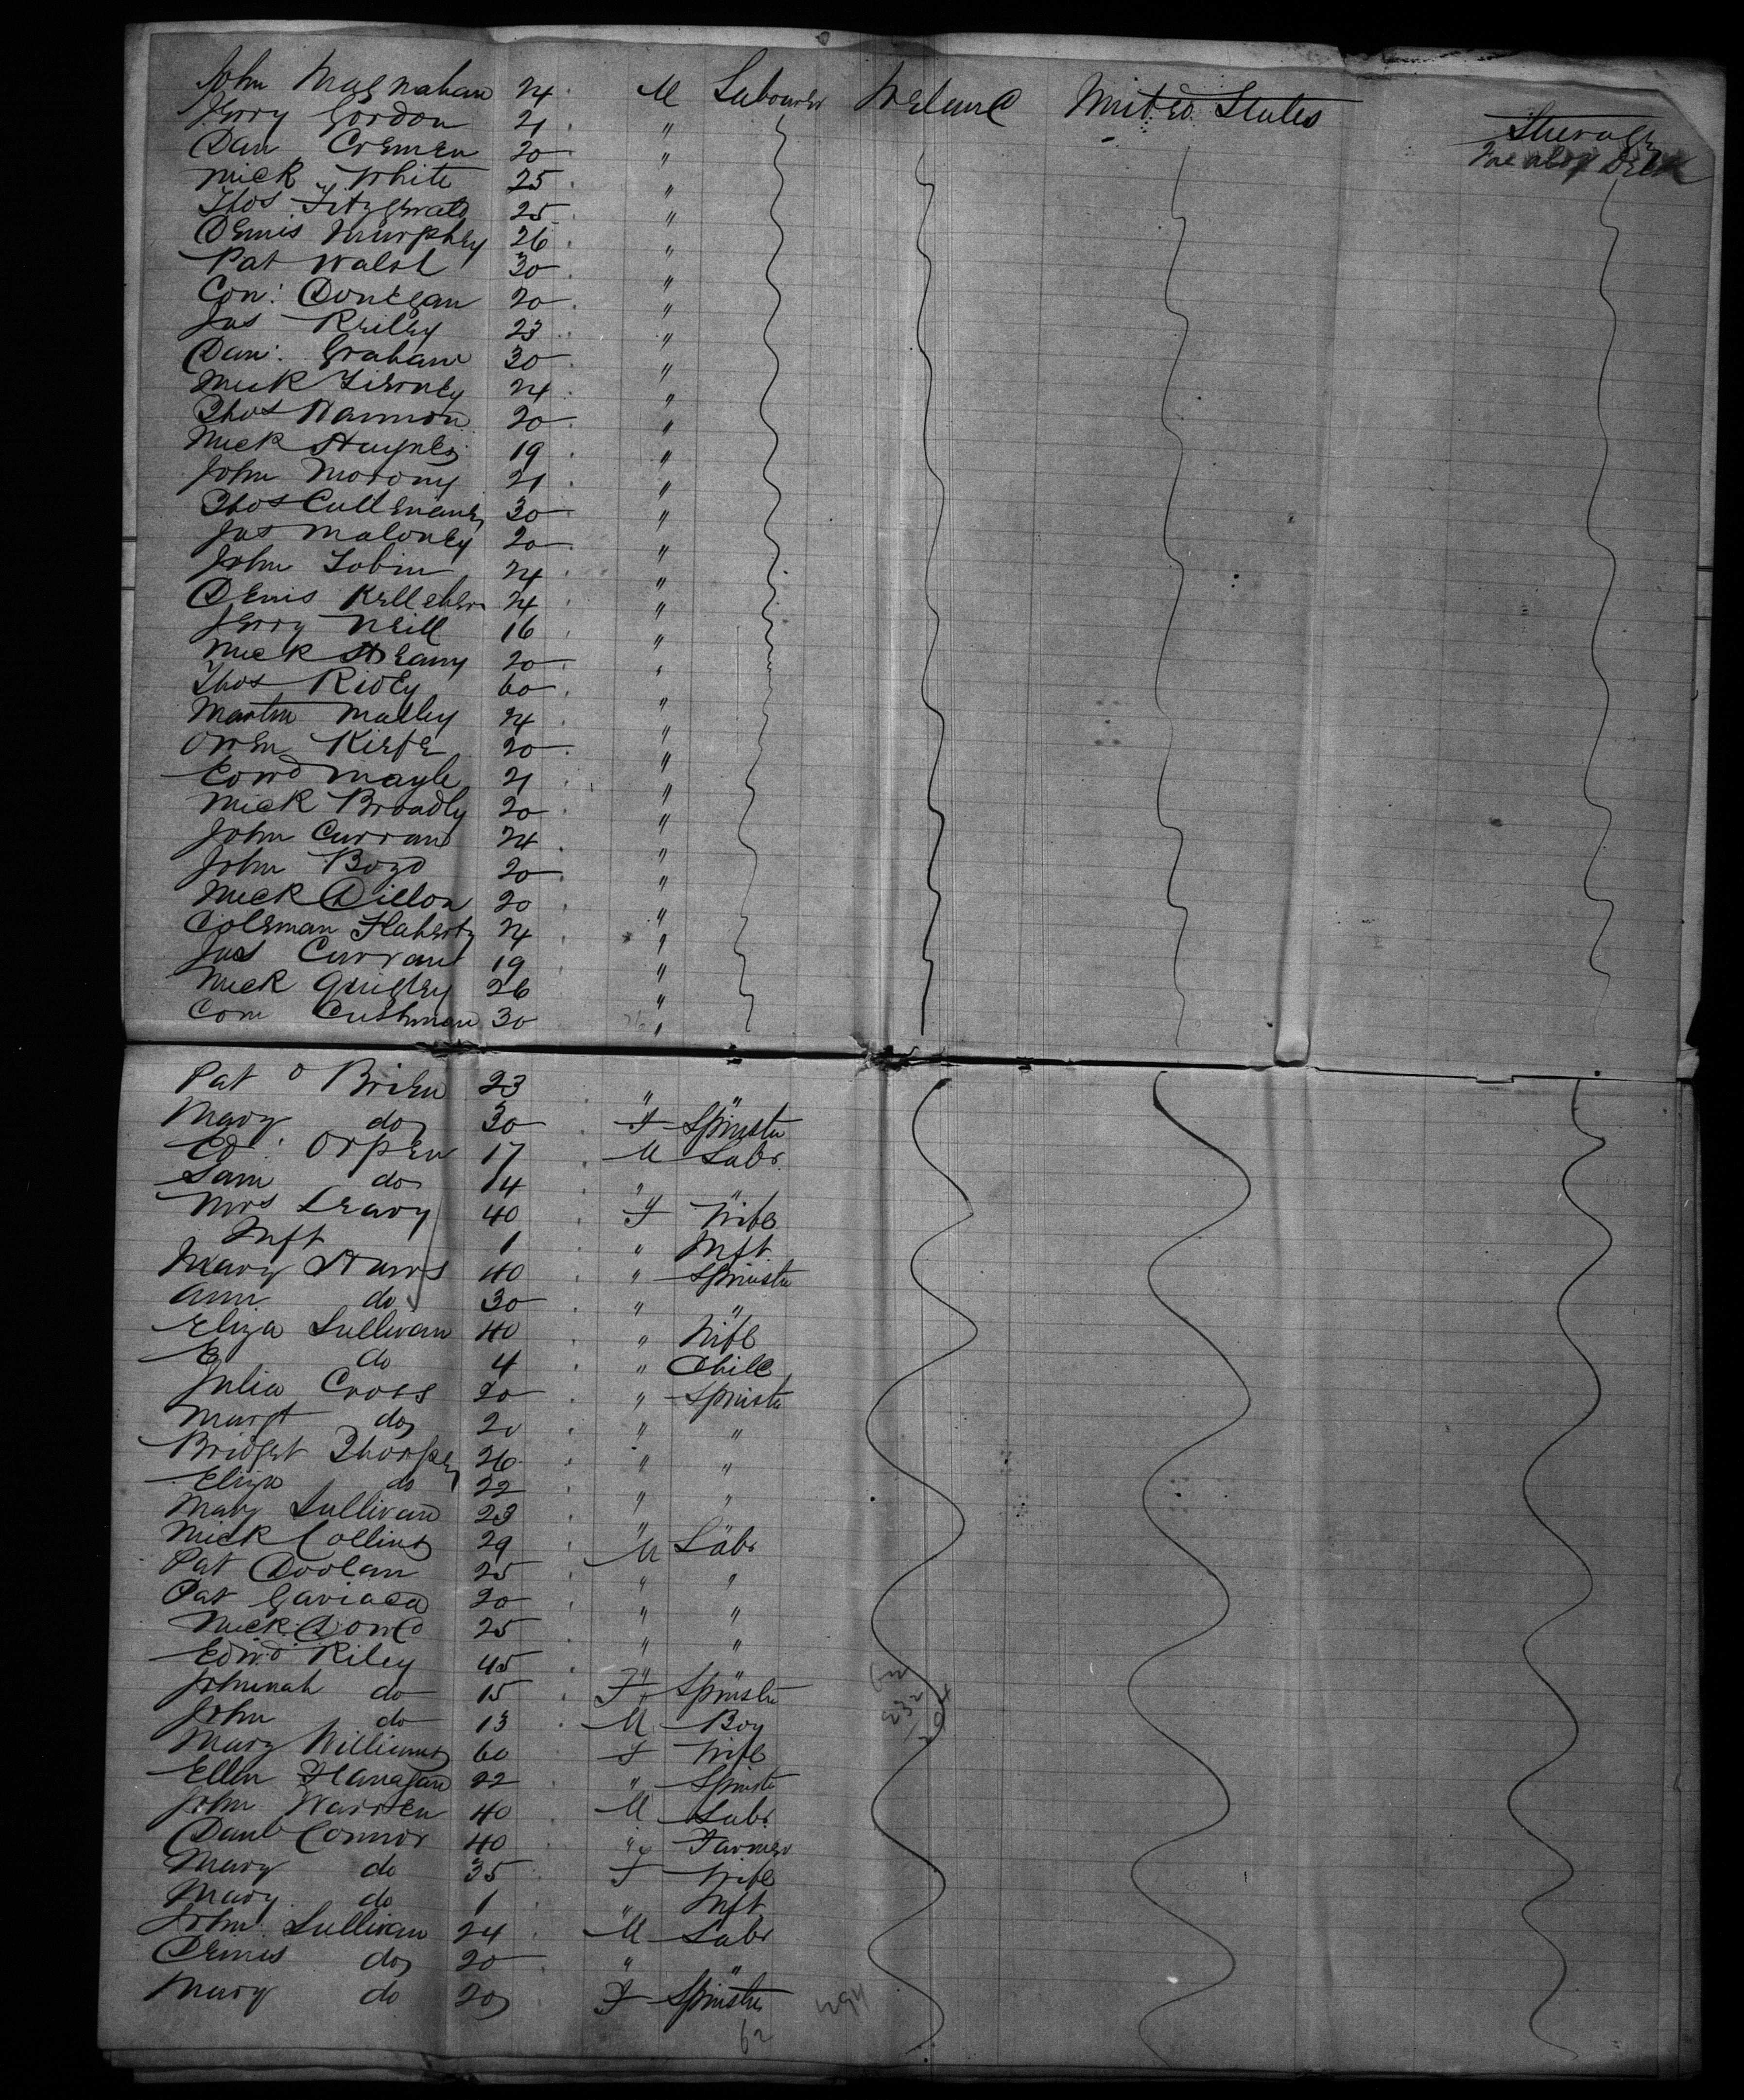 John 24 M Labourer Ireland United States Steerage
Jerry Gordon 21 "
Dan Cremen 20 "
Mick White 25 "
Thos Fitzgerald 25 "
Denis Murphey 26 "
Pat Walsh 30 "
Con: Donegan 20 "
Jas Reiley 23 "
Dan: Graham 30 "
Mick Tierney 24 "
Thos Hannon 20 "
Mick Haynes 19 "
John Morony 21 "
Thos 30 "
Jas Maloney 20 "
John Tobin 24 "
Denis Kelleher 24 "
Jerry Neill 16 "
Mick Heany 20 "
Thos Ridey 60 "
Martin Malley 24 "
Owen Kiefe 20 "
Edwd Mayle 21 "
Mick Broadly 20 "
John Curran 24 "
John Boyd 20 "
Mick Dillon 20 "
Coleman Flaherty 24 "
Jas Curran 19 "
Mick Quigley 26 "
Com Cushman 30 "
Pat o Brien 23 " "
Mary do 30 F Spinster
Ed: Orpen 17 M Labr
Sam do 14 " "
Mrs Leary 40 F Wife
Inft 1 " Inft
Mary 40 " Spinster
Ann do 30 " "
Eliza Sullivan 40 " Wife
E do 4 " Child
Julia Cross 20 " Spinster
Margt do 20 " "
Bridget 26 " "
Eliza do 22 " "
Mary Sullivan 23 " "
Mick Collins 29 M Labr
Pat Doolan 25 " "
Pat 20 " "
Mick Dowd 25 " "
Edwd Riley 45 " "
Johannah do 15 F Spinster
John do 13 M Boy
Mary Williams 60 F Wife
Ellen Flanagan 22 " Spinster
John Warren 40 M Labr
Danl Connor 40 " Farmer
Mary do 35 F Wife
Mary do 1 " Inft
John Sullivan 24 M Labr
Denis do 20 " "
Mary do 20 F Spinster
62